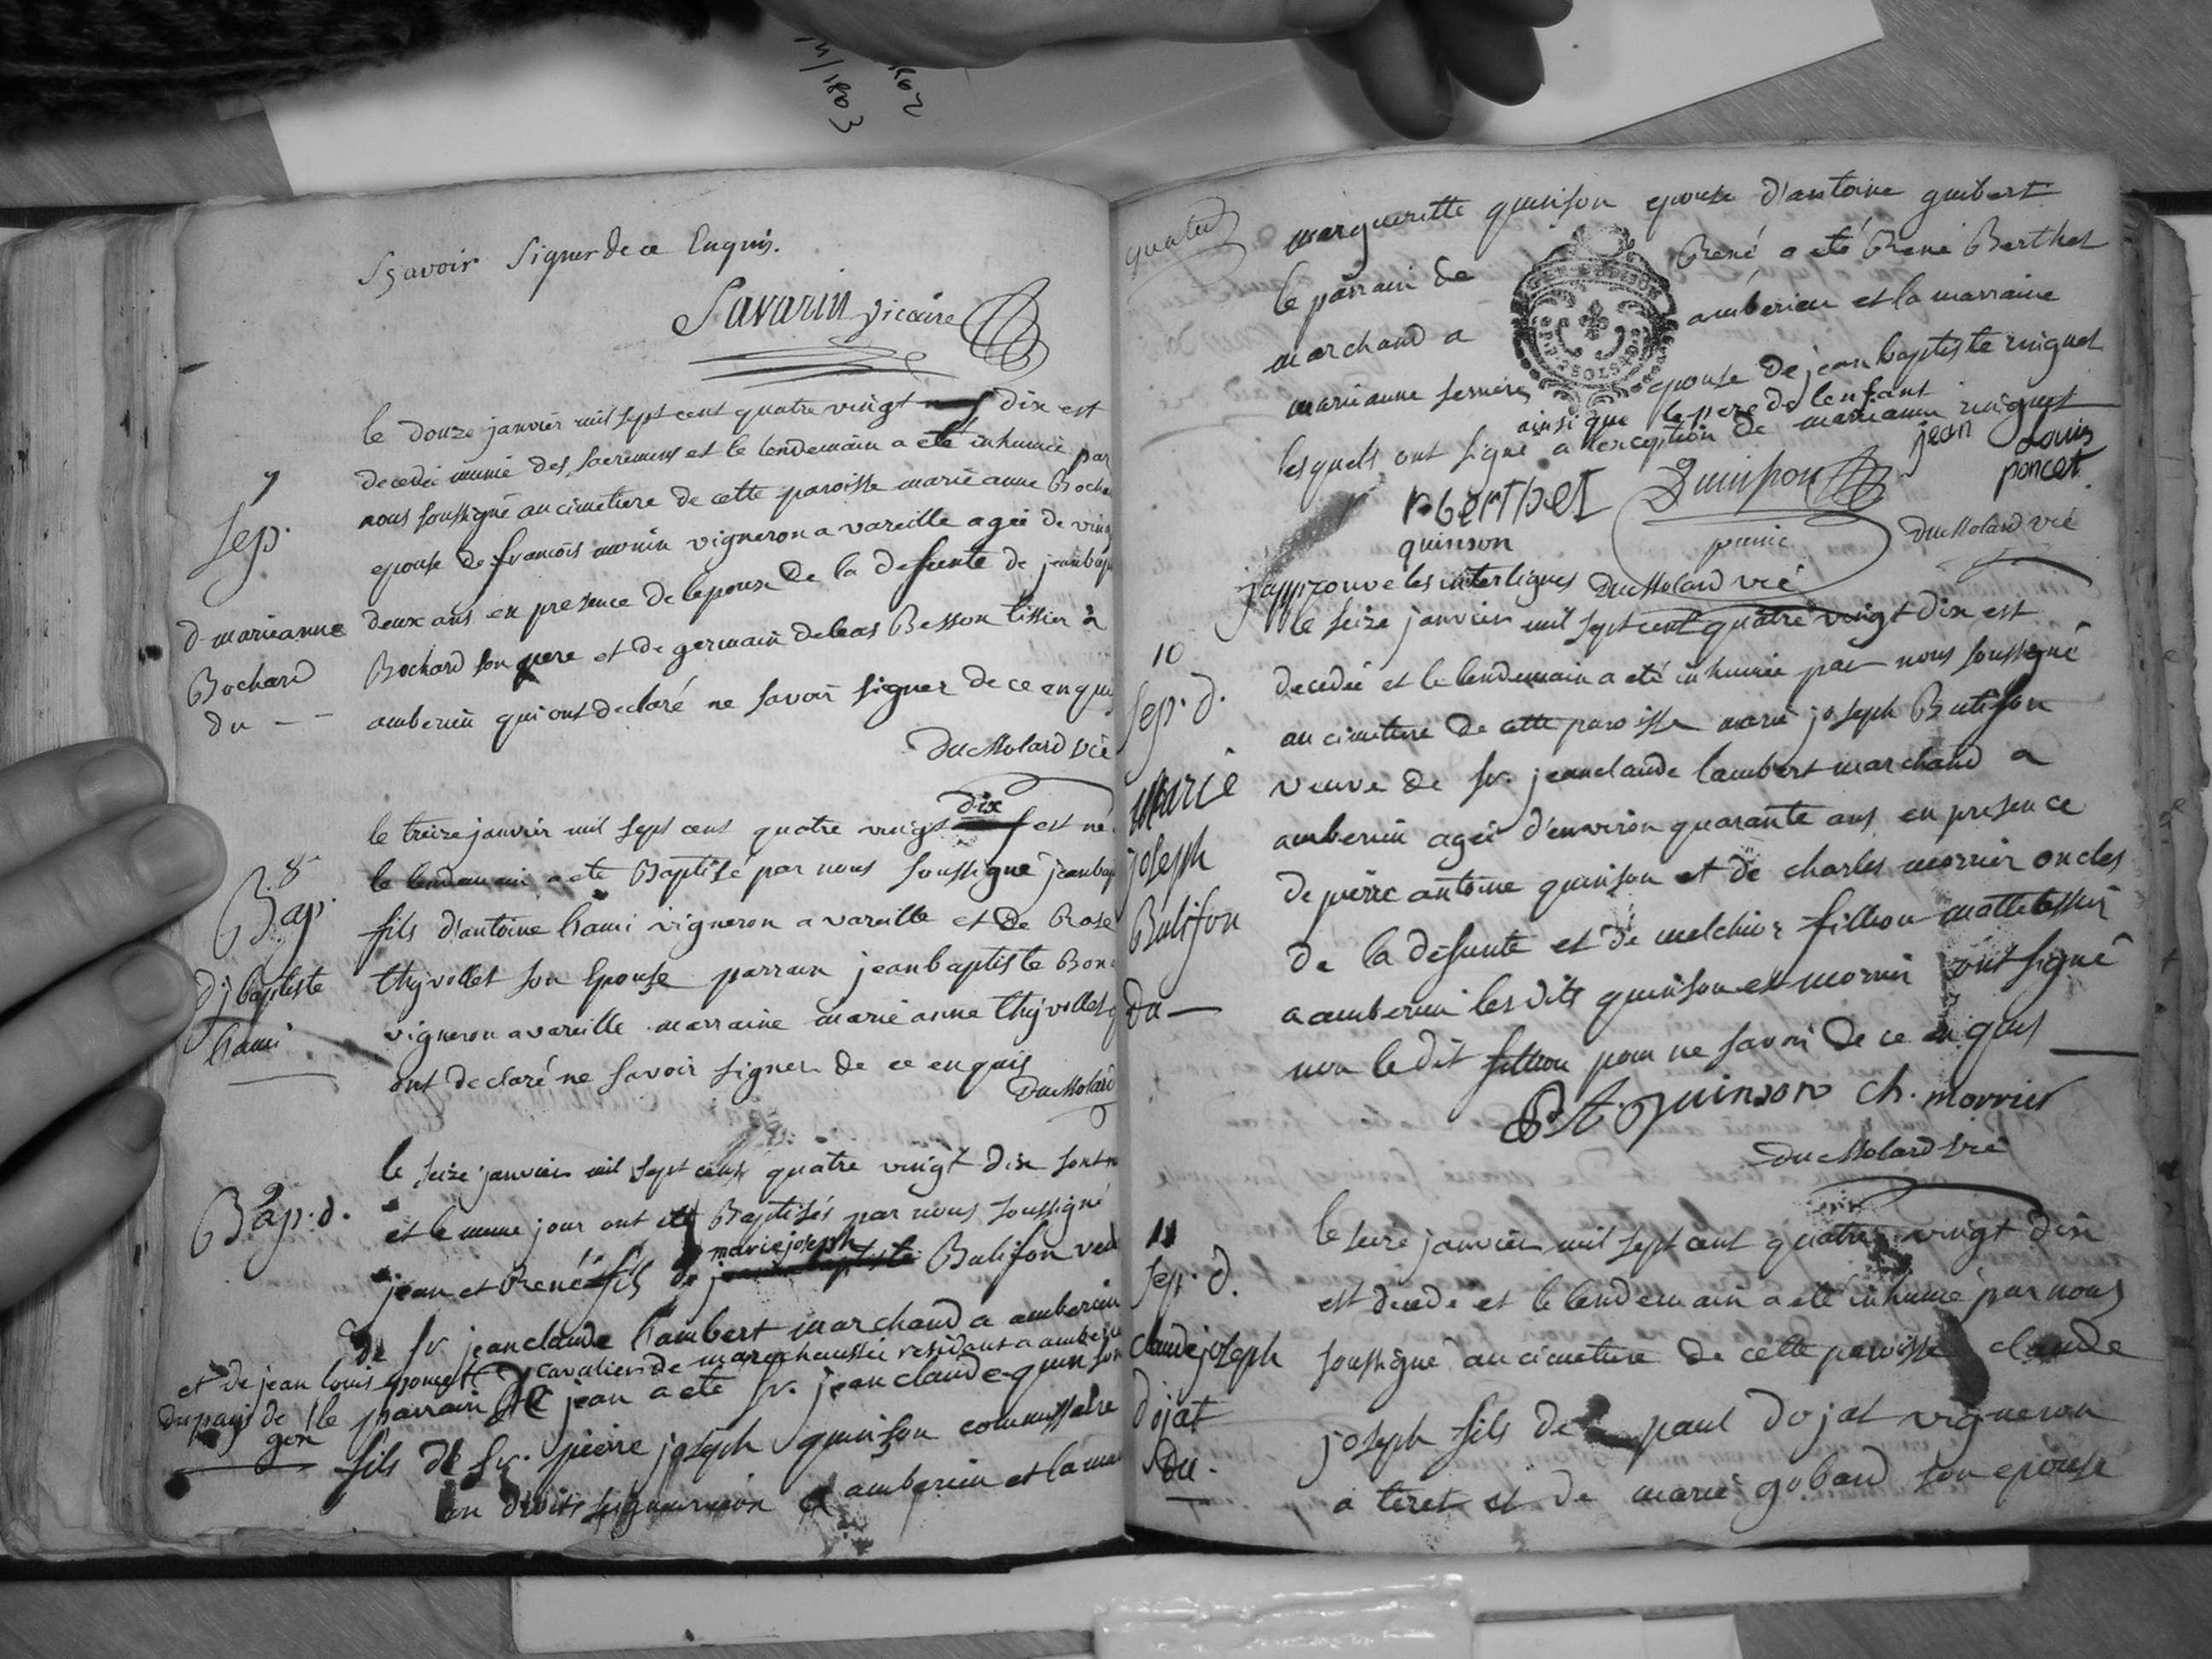 Sçavoir Signer de ce Enquis.
Savarin vicaire
le douze janvier mil sept cent quatre vingt dix est
decedée munie des sacremens et le lendemain a eté inhumée par
nous soussigné au cimetiere de cette paroisse marieanne Bocha
7
Sep.
epouse de françois monin vigneron a vareille agée de ving
d. marieanne
deux ans en presence de lepoux de la defunte de jeanbap
Bochard
Bochard son pere et de germain Besson tissier à
du - -
amberieu qui ont declaré ne savoir signer de ce enqui
Dumolard vic
dix
le treize janvier mil sept cent quatre vingt est né
8
le lendemain a eté Baptisé par nous soussigné jeanbap
Bap.
fils d'antoine hami vigneron a vareille et de Rose
d j baptiste
thyvollet son Epouse parrain jeanbaptiste Bon
hami
vigneron a vareille marraine marieanne thyvollet
ont declaré ne savoir signer de ce enquis
Dumolard
le seize janvier mil sept cent quatre vingt dix sont n
9
Bap. d.
et le meme jour ont eté Baptisés par nous soussigné
mariejoseph
jean et René fils de Bulifon veuv
de sr. jeanclaude Lambert marchand a amberieu
et de jean louis poncet cavalier de marechaussée residant a amberieu
du pays de le parrain de jean a eté sr. jeanclaude quinson
gex
fils de sr. pierre joseph quinson commissaire
en droits seigneuriaux a amberieu et la mar
quatre
margueritte quinson epouse d'antoine guibert
le parrain de René a eté René Berthet
marchand a amberieu et la marraine
marieanne epouse de jean baptiste
ainsi que le pere de lenfant
lesquels ont signé a lexception de marieanne
jean Louis
poncet
r. berthet Quinson
quinson
Dumolard vic
japprouve les interlignes Dumolard vic
le seize janvier mil sept cent quatre vingt dix est
10
decedée et le lendemain a eté inhumée par nous soussigné
Sep. d.
au cimetiere de cette paroisse marie joseph Bulifon
marie
veuve de sr. jeanclaude lambert marchand a
joseph
amberieu agée d'environ quarante ans en presence
Bulifon
de pierre antoine quinson et de charles morrier oncles
du —
de la defunte et de melchior fillion
a amberieu lesdits quinson et morrier ont signé
non le dit fillion pour ne savoir de ce enquis
P. A. Quinson Ch. morrier
Dumolard vic
11
le seize janvier mil sept cent quatre vingt dix
Sep. d.
est decedé et le lendemain a eté inhumé par nous
claudejoseph
soussigné au cimetiere de cette paroisse claude
dojat
joseph fils de paul dojat vigneron
du.
a tiret et de marie gobard son epouse